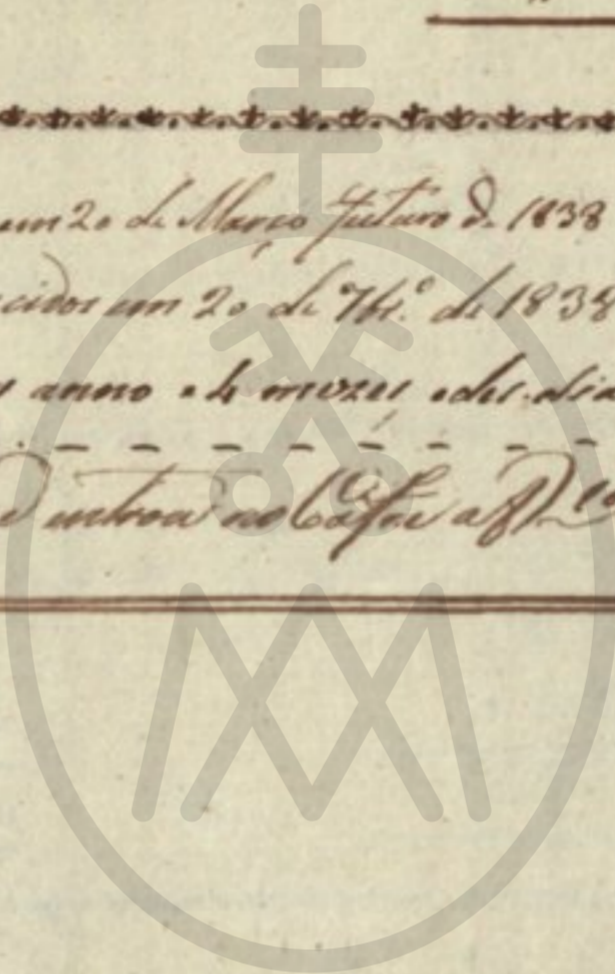 em 20 de Março futuro de 1838
cidos em 20 de 7br.º de 1838
anno e 4 mezes e des dia
entrou no Cofre a